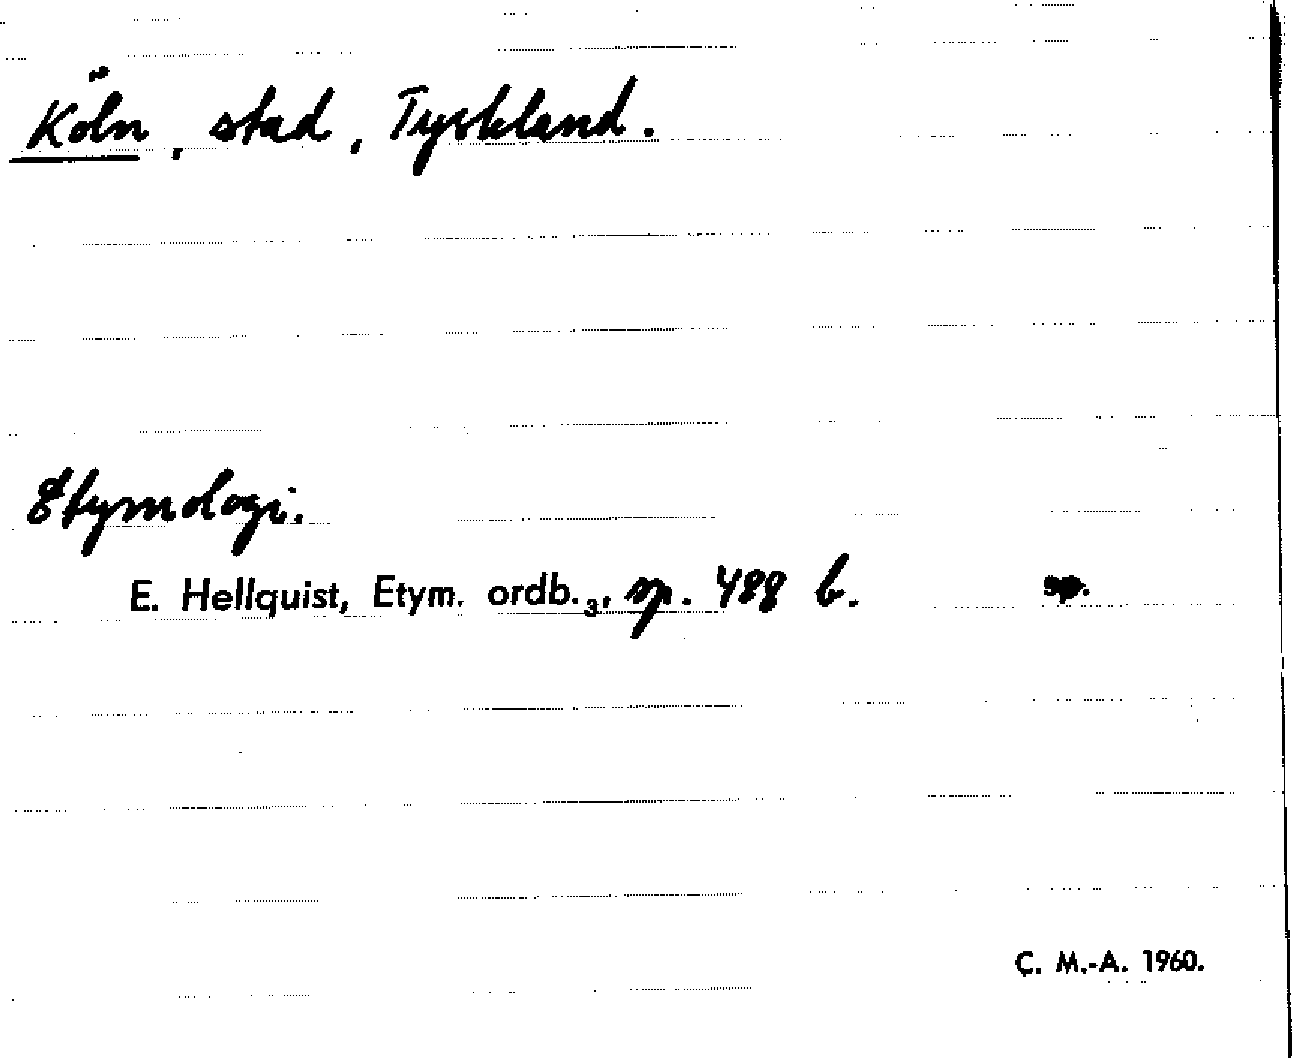 Köln, stad, Tyskland.
Etymologi.
E. Hellquist, Etym. ordb.₃, sp. 488 b. sp.
C. M.-A. 1960.